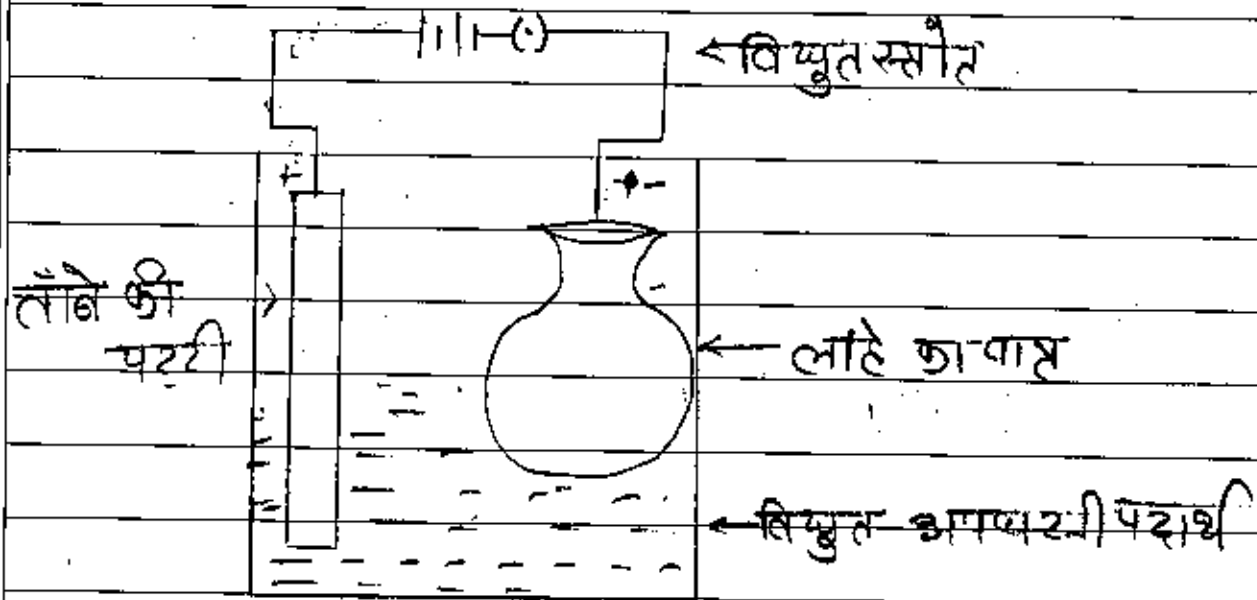 विद्युत स्त्रोत
+
-
ताँबे की
पट्टी
लोहे का पात्र
विद्युत अपघटनी पदार्थ